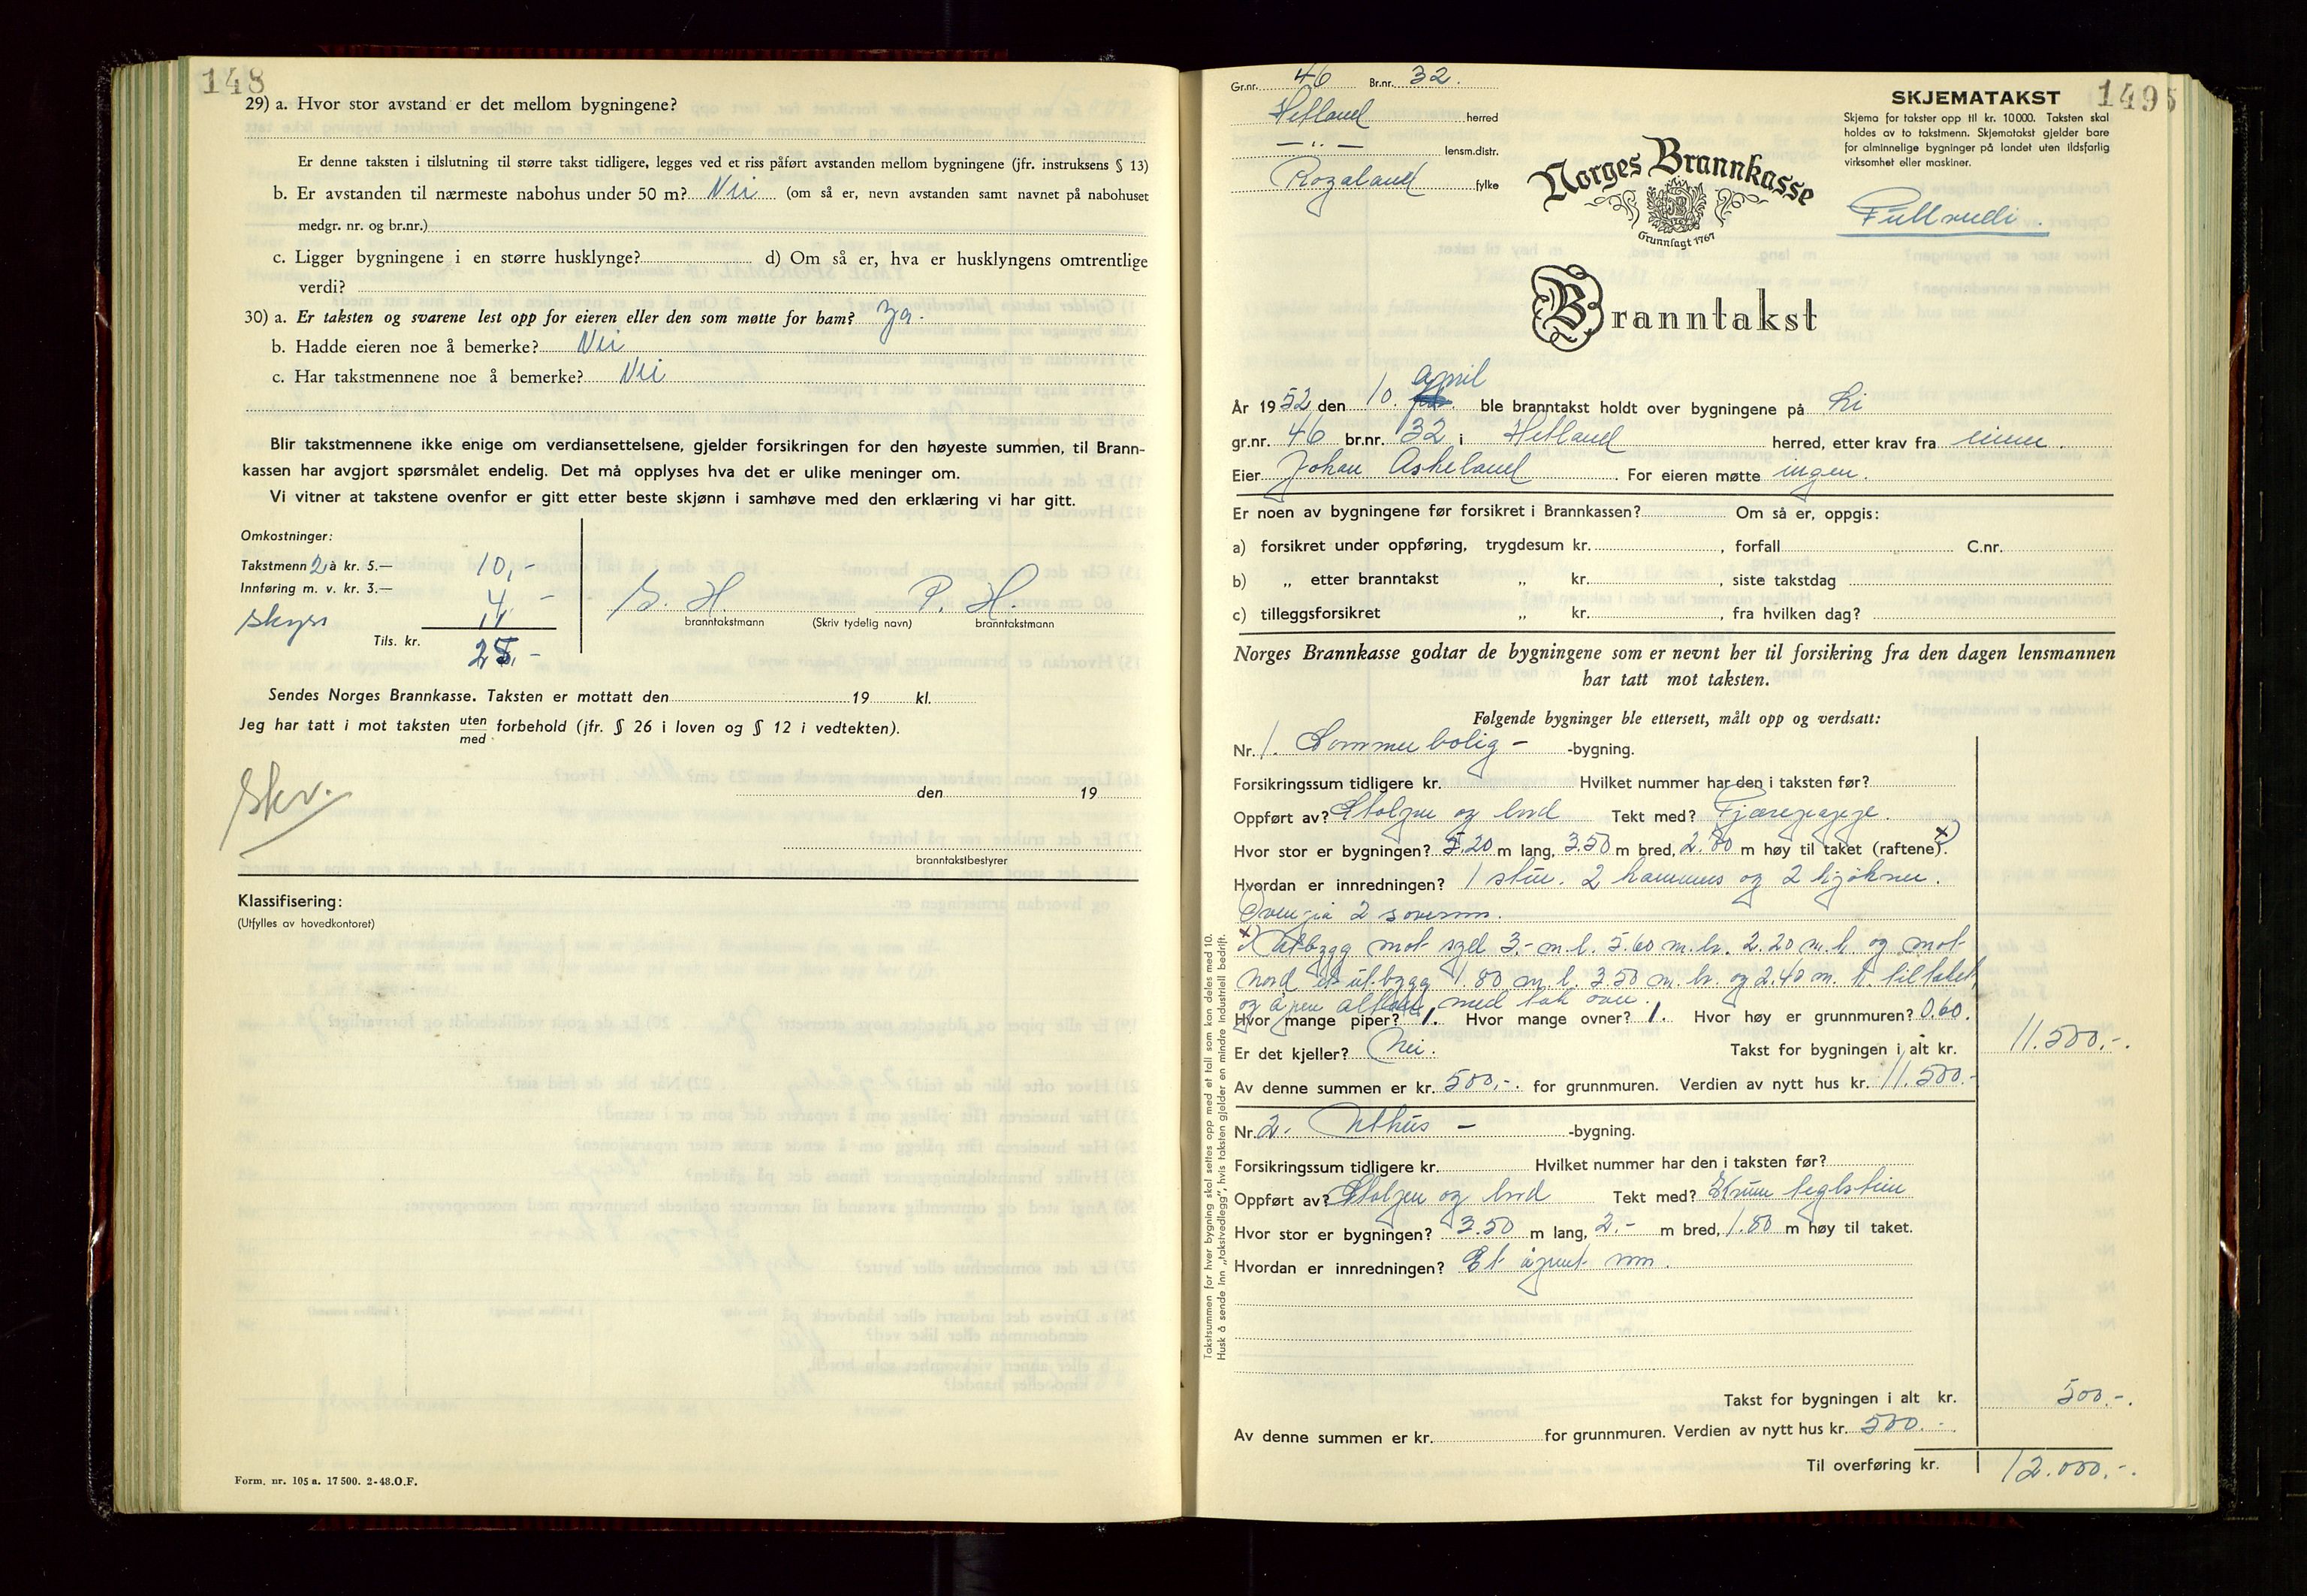 148
29) a. Hvor stor avstand er det mellom bygningene?
Er denne taksten i tilslutning til større takst tidligere, legges ved et riss påført avstanden mellom bygningene (jfr. instruksens § 13)
b. Er avstanden til nærmeste nabohus under 50 m? Nei (om så er, nevn avstanden samt navnet på nabohuset
medgr. nr. og br.nr.)
c. Ligger bygningene i en større husklynge? d) Om så er, hva er husklyngens omtrentlige
verdi?
30) a. Er taksten og svarene lest opp for eieren eller den som møtte for ham? Ja.
b. Hadde eieren noe å bemerke? Nei
c. Har takstmennene noe å bemerke? Nei
Blir takstmennene ikke enige om verdiansettelsene, gjelder forsikringen for den høyeste summen, til Brann-
kassen har avgjort spørsmålet endelig. Det må opplyses hva det er ulike meninger om.
Vi vitner at takstene ovenfor er gitt etter beste skjønn i samhøve med den erklæring vi har gitt.
Omkostninger:
Takstmenn 2 à kr. 5.— 10,-
Innføring m. v. kr. 3.— 4, -
Skyss 11,
Tils. kr. 25,-
S. H. P. H.
branntakstmann (Skriv tydelig navn) branntakstmann
Sendes Norges Brannkasse. Taksten er mottatt den 19 kl.
Jeg har tatt i mot taksten uten
med forbehold (jfr. § 26 i loven og § 12 i vedtekten).
Skv.
den 19
branntakstbestyrer
Klassifisering:
(Utfylles av hovedkontoret)
Form. nr. 105 a. 17 500. 2-48.O.F.
Gr.nr. 46 Br.nr. 32.
Hetland herred
— " — lensm.distr.
Rogaland fylke
SKJEMATAKST 149
Skjema for takster opp til kr. 10 000. Taksten skal
holdes av to takstmenn. Skjematakst gjelder bare
for alminnelige bygninger på landet uten ildsfarlig
virksomhet eller maskiner.
Norges Brannkasse
Grunnlagt 1767
Fullverdi.
Branntakst
april
År 1952 den 10. ble branntakst holdt over bygningene på Li
gr.nr. 46 br.nr. 32 i Hetland herred, etter krav fra eieren.
Eier Johan Askeland. For eieren møtte ingen.
Er noen av bygningene før forsikret i Brannkassen? Om så er, oppgis:
a) forsikret under oppføring, trygdesum kr. , forfall C.nr.
b) „ etter branntakst „ kr. , siste takstdag
c) tilleggsforsikret „ kr. , fra hvilken dag?
Norges Brannkasse godtar de bygningene som er nevnt her til forsikring fra den dagen lensmannen
har tatt mot taksten.
Følgende bygninger ble ettersett, målt opp og verdsatt:
Nr. 1. Sommerbolig - -bygning.
Forsikringssum tidligere kr. Hvilket nummer har den i taksten før?
Oppført av? Stolper og bord Tekt med? Tjærepapp.
Hvor stor er bygningen? 5.20 m lang, 3.50 m bred, 2.80 m høy til taket (raftene). x)
Hvordan er innredningen? 1 stue. 2 kammers og 2 kjøkner.
Ovenpå 2 soverom.
x) Utbygg mot syd 3,- m.l. 5.60 m.br. 2.20 m.h. og mot
nord et utbygg 1.80 m.l. 3.50 m.br. og 2.40 m.h. til taket
og åpen altan med tak over.
Hvor mange piper? 1. Hvor mange ovner? 1. Hvor høy er grunnmuren? 0.60.
Er det kjeller? Nei. Takst for bygningen i alt kr. 11.500,-.
Av denne summen er kr. 500,-. for grunnmuren. Verdien av nytt hus kr. 11.500.-
Nr. 2. Uthus - -bygning.
Forsikringssum tidligere kr. Hvilket nummer har den i taksten før?
Oppført av? Stolper og bord Tekt med? Krum teglstein
Hvor stor er bygningen? 3.50 m lang, 2.- m bred, 1.80 m høy til taket.
Hvordan er innredningen? Et åpent rom.
Takst for bygningen i alt kr. 500.-.
Av denne summen er kr. for grunnmuren. Verdien av nytt hus kr. 500.-
Til overføring kr. 12.000.-.
Takstsummen for hver bygning skal settes opp med et tall som kan deles med 10.
Husk å sende inn „takstvedlegg”, hvis taksten gjelder en mindre industriell bedrift.